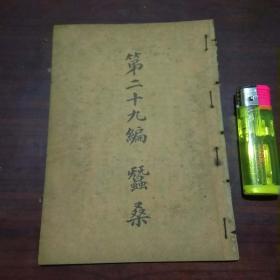 第二十九編 蠶桑